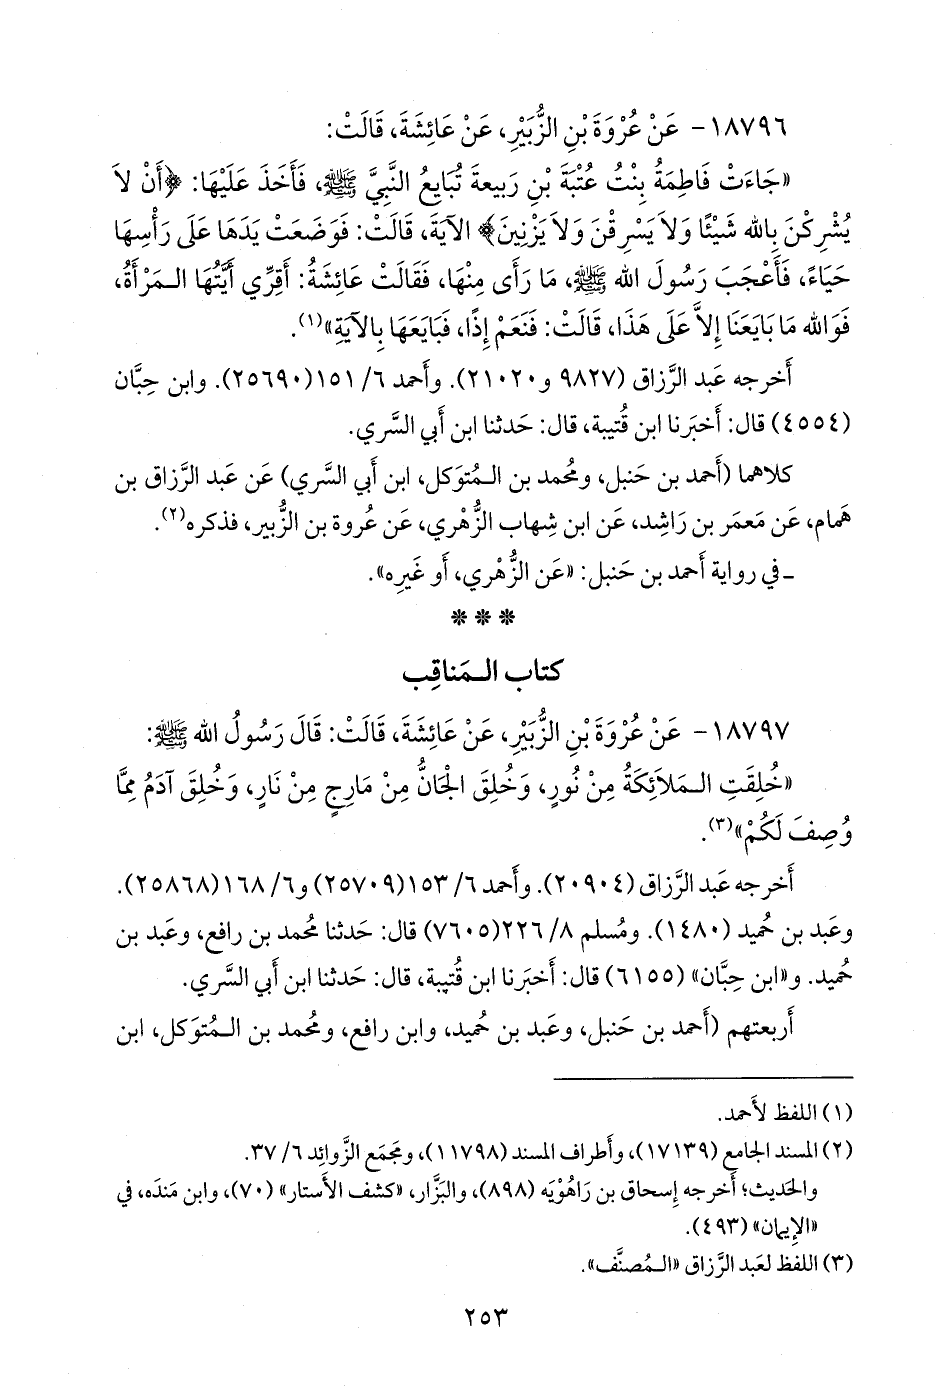 ١٨٧٩٦- عَنْ عُرْوَةَ بْنِ الزُّبَيْرِ، عَنْ عَائِشَةَ، قَالَتْ:
«جَاءَتْ فَاطِمَةُ بِنْتُ عُتْبَةَ بْنِ رَبِيعةَ تُبَايِعُ النَّبِيَّ ﷺ، فَأَخَذَ عَلَيْهَا: ﴿أَنْ لاَ
يُشْرِكْنَ بِالله شَيْئًا وَلاَ يَسْرِقْنَ وَلاَ يَزْنِينَ﴾ الآيَةَ، قَالَتْ: فَوَضَعَتْ يَدَهَا عَلَى رَأْسِهَا
حَيَاءً، فَأَعْجَبَ رَسُولَ الله ﷺ، مَا رَأَى مِنْهَا، فَقَالَتْ عَائِشَةُ: أَقِرِّي أَيَّتُهَا الـمَرْأَةُ،
فَوَالله مَا بَايَعَنَا إِلاَّ عَلَى هَذَا، قَالَتْ: فَنَعَمْ إِذًا، فَبَايَعَهَا بِالآيَةِ»(١).
أَخرجه عَبد الرَّزاق (٩٨٢٧ و٢١٠٢٠). وأَحمد ٦/ ١٥١(٢٥٦٩٠). وابن حِبَّان
(٤٥٥٤) قال: أَخبَرنا ابن قُتيبة، قال: حَدثنا ابن أَبي السَّري.
كلاهما (أَحمد بن حَنبل، ومُحمد بن الـمُتوَكل، ابن أَبي السَّري) عَن عَبد الرَّزاق بن
هَمام، عَن مَعمَر بن رَاشِد، عَن ابن شِهاب الزُّهْري، عَن عُروة بن الزُّبير، فذكره(٢).
ـ في رواية أَحمد بن حَنبل: «عَن الزُّهْري، أَو غَيرِه».
* * *
كتاب الـمَناقِب
١٨٧٩٧- عَنْ عُرْوَةَ بْنِ الزُّبَيْرِ، عَنْ عَائِشَةَ، قَالَتْ: قَالَ رَسُولُ الله ﷺ:
«خُلِقَتِ الـمَلاَئِكَةُ مِنْ نُورٍ، وَخُلِقَ الْجَانُّ مِنْ مَارِجٍ مِنْ نَارٍ، وَخُلِقَ آدَمُ مِمَّا
وُصِفَ لَكُمْ»(٣).
أَخرجه عَبد الرَّزاق (٢٠٩٠٤). وأَحمد ٦/ ١٥٣(٢٥٧٠٩) و٦/ ١٦٨(٢٥٨٦٨).
وعَبد بن حُميد (١٤٨٠). ومُسلم ٨/ ٢٢٦(٧٦٠٥) قال: حَدثنا مُحمد بن رافع، وعَبد بن
حُميد. و«ابن حِبَّان» (٦١٥٥) قال: أَخبَرنا ابن قُتيبة، قال: حَدثنا ابن أَبي السَّري.
أَربعتهم (أَحمد بن حَنبل، وعَبد بن حُميد، وابن رافع، ومُحمد بن الـمُتوَكل، ابن
(١) اللفظ لأَحمد.
(٢) المسند الجامع (١٧١٣٩)، وأَطراف المسند (١١٧٩٨)، ومَجمَع الزَّوائِد ٦/ ٣٧.
والحَديث؛ أَخرجه إِسحاق بن رَاهُوْيَه (٨٩٨)، والبَزَّار، «كشف الأَستار» (٧٠)، وابن مَندَه، في
«الإِيمان» (٤٩٣).
(٣) اللفظ لعَبد الرَّزاق «الـمُصنَّف».
٢٥٣